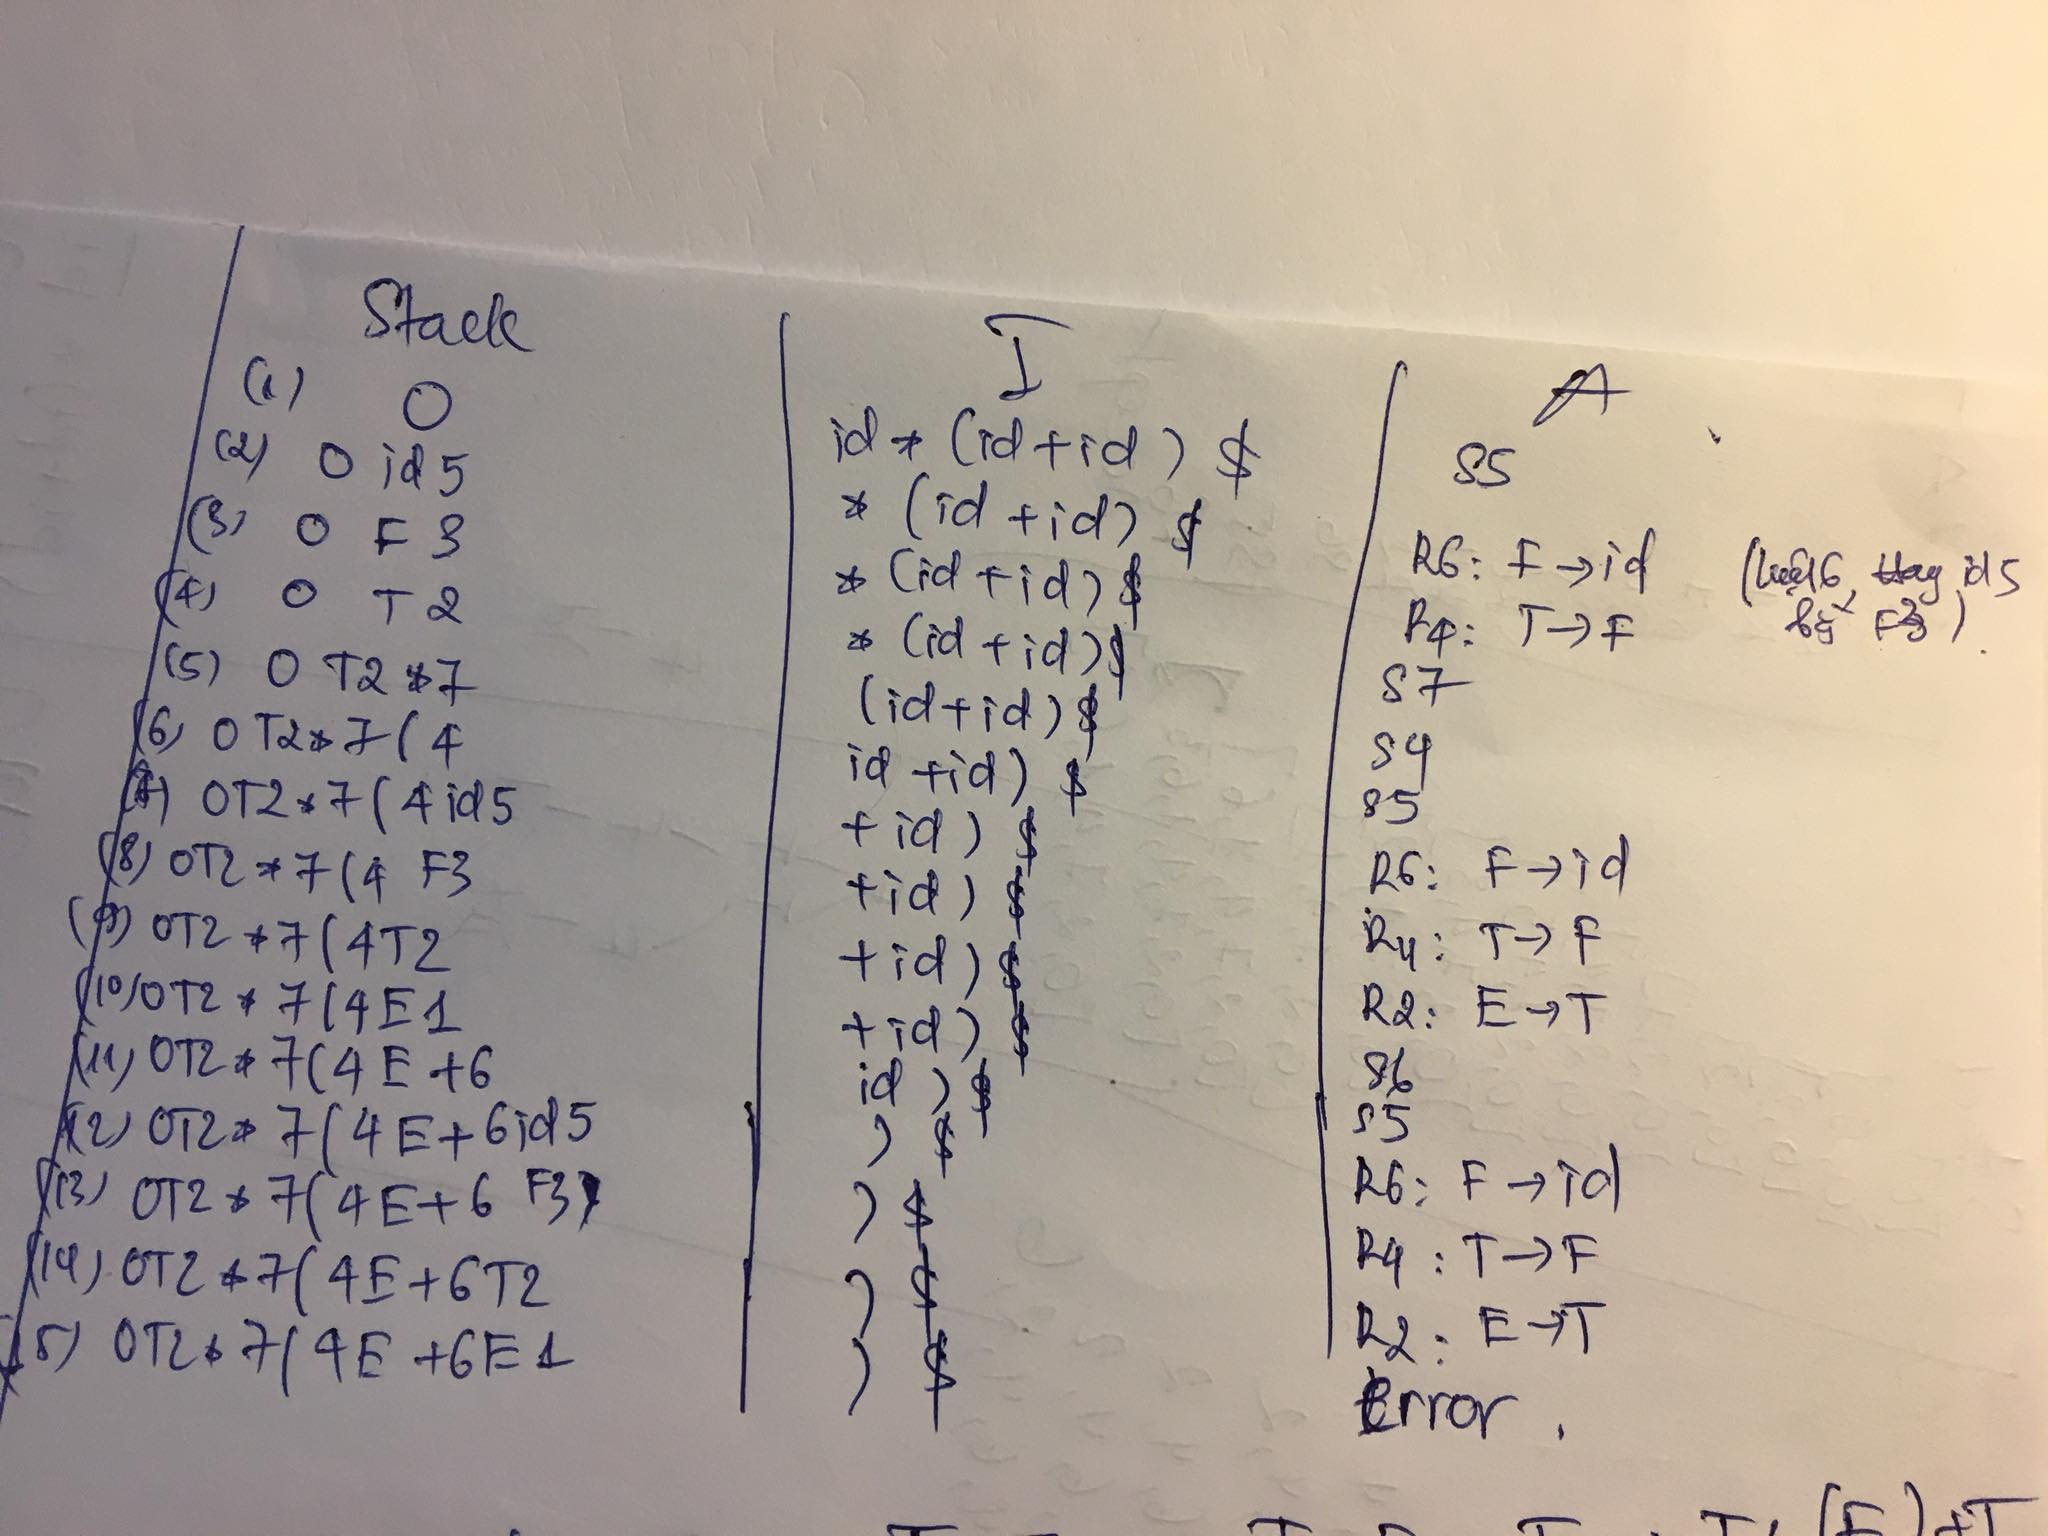 Stack I A
(1) 0 id * (id + id) $ S5
(2) 0 id 5 * (id + id) $ R6: F → id (luật 6, thay id 5
(3) 0 F 3 * (id + id) $ R4: T → F bởi F3)
(4) 0 T 2 * (id + id) $ S7
(5) 0 T2 * 7 (id + id) $ S4
(6) 0 T2 * 7 ( 4 id + id) $ S5
(7) 0T2 * 7 ( 4 id 5 + id) $ R6: F → id
(8) 0T2 * 7 ( 4 F3 + id) $ R4: T → F
(9) 0T2 * 7 ( 4T2 + id) $ R2: E → T
(10) 0T2 * 7 ( 4E1 + id) $ S6
(11) 0T2 * 7 ( 4 E + 6 id ) $ S5
(12) 0T2 * 7 ( 4 E + 6 id 5 ) $ R6: F → id
(13) 0T2 * 7 ( 4 E + 6 F3 ) $ R4: T → F
(14) 0T2 * 7 ( 4E + 6T2 ) $ R2: E → T
5) 0T2 * 7 ( 4E + 6E1 ) $ Error.